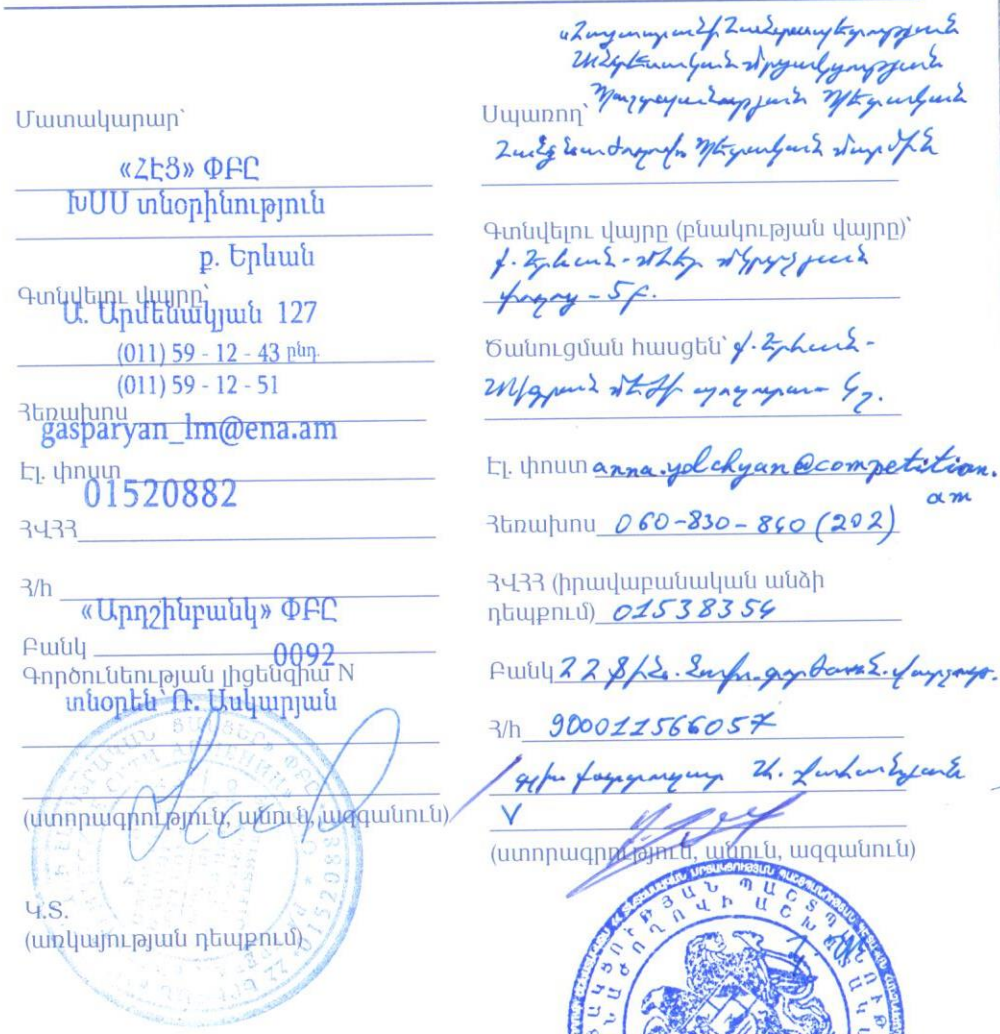 Մատակարար՝
«ՀԷՑ» ՓԲԸ
ԽՍՍ տնօրինություն
ք. Երևան
Գտնվելու վայրը՝
Ա. Արմենակյան 127
(011) 59 - 12 - 43 բնդ.
(011) 59 - 12 - 51
Հեռախոս
gasparyan_lm@ena.am
Էլ. փոստ
01520882
ՀՎՀՀ
Հ/հ
«Արդշինբանկ» ՓԲԸ
Բանկ
0092
Գործունեության լիցենզիա N
տնօրեն՝ Ռ. Ասկարյան
(ստորագրություն, անուն, ազգանուն)
Կ.Տ.
(առկայության դեպքում)
«Հայաստանի Հանրապետության
Տնտեսական մրցակցության
Սպառող՝ Պաշտպանության Պետական
Հանձնաժողով Պետական մարմին
Գտնվելու վայրը (բնակության վայրը)՝
ք. Երևան - Մհեր Մկրտչյան
փողոց - 5
Ծանուցման հասցեն՝ ք. Երևան -
Տիգրան Մեծի պողոտա
Էլ. փոստ anna.yolchyan@competition.
am
Հեռախոս 060-830-840 (202)
ՀՎՀՀ (իրավաբանական անձի
դեպքում) 01538354
Բանկ ՀՀ ֆին. նախ. գործառն. վարչութ.
Հ/հ 900011566057
V
(ստորագրություն, անուն, ազգանուն)